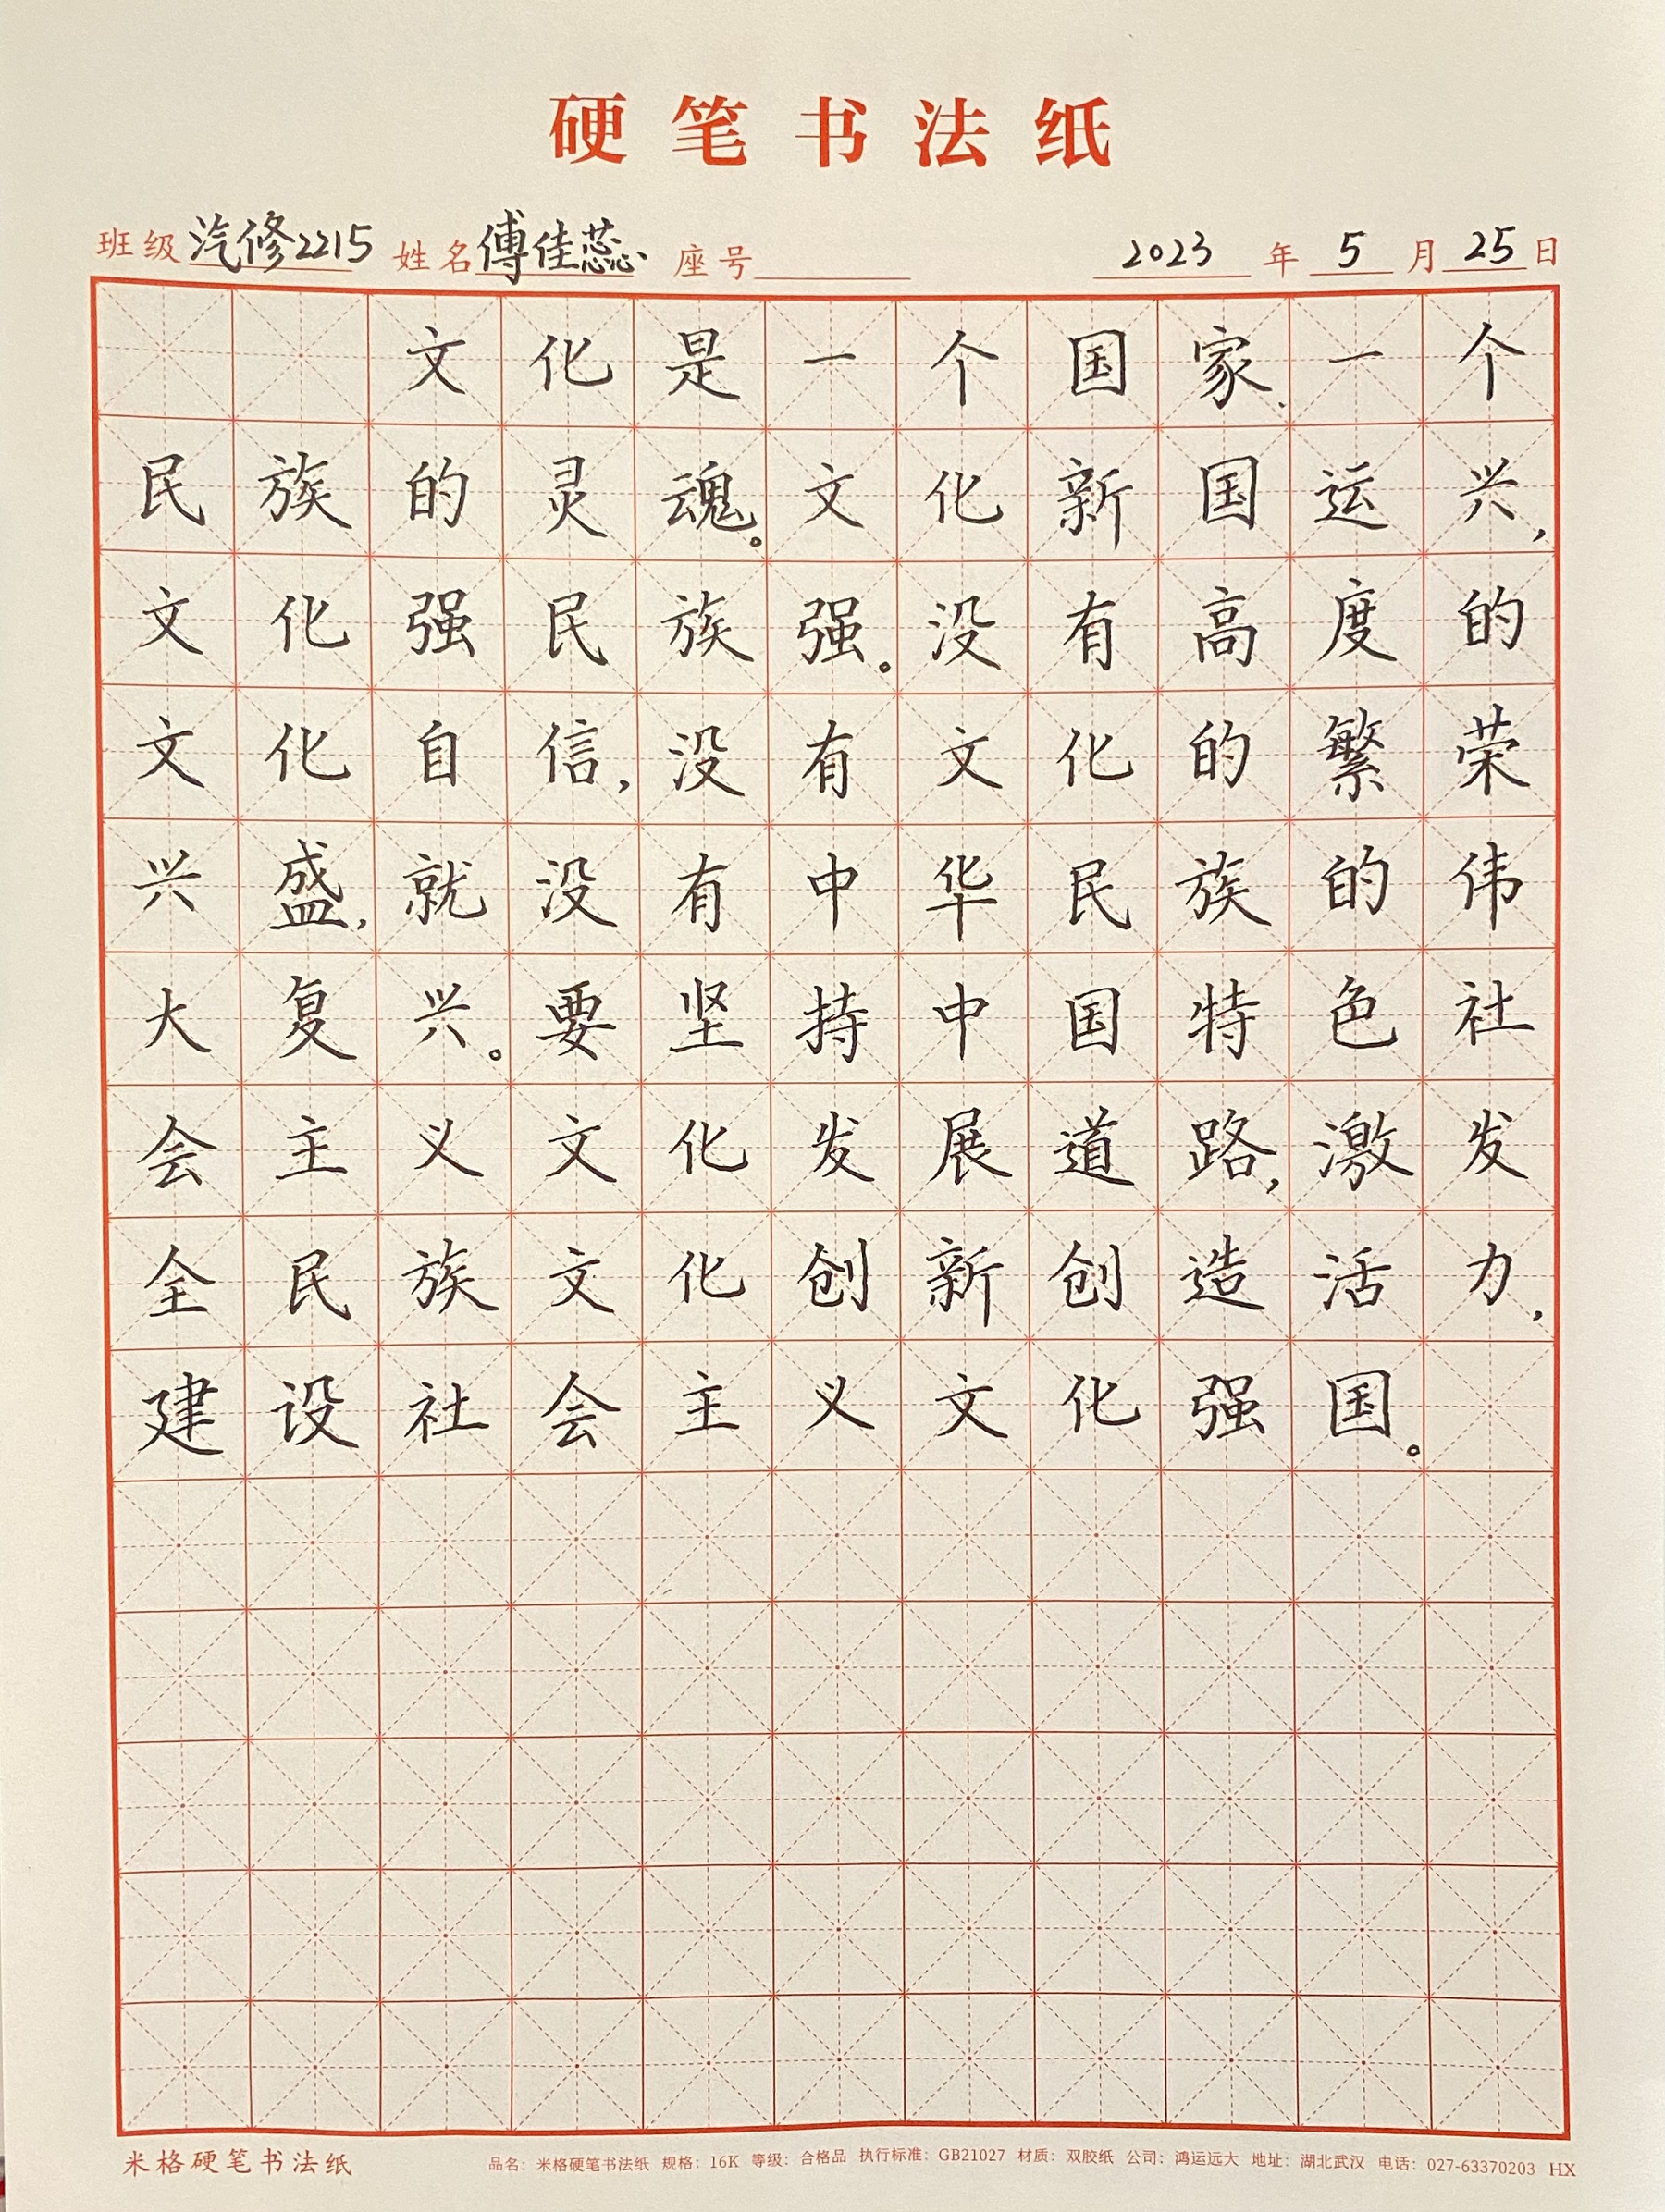 硬笔书法纸
班级 汽修2215 姓名 傅佳蕊 座号 2023 年 5 月 25 日
文化是一个国家、一个
民族的灵魂。文化新国运兴,
文化强民族强。没有高度的
文化自信,没有文化的繁荣
兴盛,就没有中华民族的伟
大复兴。要坚持中国特色社
会主义文化发展道路,激发
全民族文化创新创造活力,
建设社会主义文化强国。
米格硬笔书法纸 品名:米格硬笔书法纸 规格:16K 等级:合格品 执行标准:GB21027 材质:双胶纸 公司:鸿运远大 地址:湖北武汉 电话:027-63370203 HX